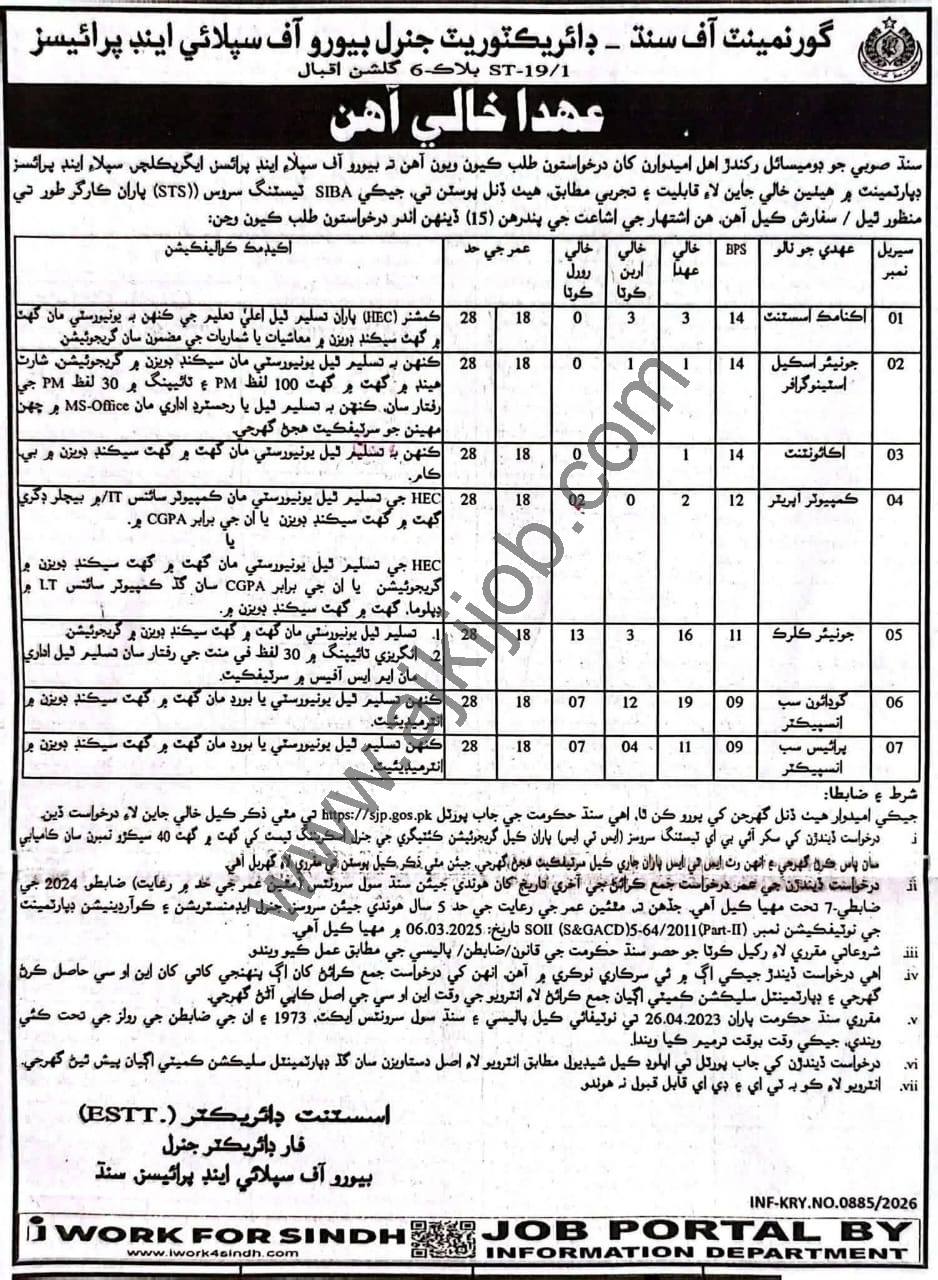 گورنمينٽ آف سنڌ - ڊائريڪٽوريٽ جنرل بيورو آف سپلائي اينڊ پرائيسز
ST-19/1 بلاڪ-6 گلشن اقبال
عهدا خالي آهن
سنڌ صوبي جو ڊوميسائل رکندڙ اهل اميدوارن کان درخواستون طلب ڪيون ويون آهن ته بيورو آف سپلاءِ اينڊ پرائسز ايگريڪلچر، سپلاءِ اينڊ پرائسز
ڊپارٽمينٽ ۾ هيٺين خالي جاين لاءِ قابليت ۽ تجربي مطابق، هيٺ ڏنل پوسٽن تي، جيڪي SIBA ٽيسٽنگ سروس ((STS) پاران ڪارگر طور تي
منظور ٿيل / سفارش ڪيل آهن، هن اشتهار جي اشاعت جي پندرهن (15) ڏينهن اندر درخواستون طلب ڪيون وڃن:
سيريل نمبر | عهدي جو نالو | BPS | خالي عهدا | خالي اربن ڪوٽا | خالي رورل ڪوٽا | عمر جي حد | اڪيڊمڪ ڪواليفڪيشن
01 | اڪنامڪ اسسٽنٽ | 14 | 3 | 3 | 0 | 18 | 28 | ڪمشنر (HEC) پاران تسليم ٿيل اعليٰ تعليم جي ڪنهن به يونيورسٽي مان گهٽ
۾ گهٽ سيڪنڊ ڊويزن ۾ معاشيات يا شماريات جي مضمون سان گريجوئيشن
02 | جونيئر اسڪيل اسٽينوگرافر | 14 | 1 | 1 | 0 | 18 | 28 | ڪنهن به تسليم ٿيل يونيورسٽي مان سيڪنڊ ڊويزن ۾ گريجوئيشن، شارٽ
هينڊ ۾ گهٽ ۾ گهٽ 100 لفظ PM ۽ ٽائيپنگ ۾ 30 لفظ PM جي
رفتار سان. ڪنهن به تسليم ٿيل يا رجسٽرڊ اداري مان MS-Office ۾ ڇهن
مهينن جو سرٽيفڪيٽ هجڻ گهرجي.
03 | اڪائونٽنٽ | 14 | 1 | 1 | 0 | 18 | 28 | ڪنهن به تسليم ٿيل يونيورسٽي مان گهٽ ۾ گهٽ سيڪنڊ ڊويزن ۾ بي.
ڪام.
04 | ڪمپيوٽر آپريٽر | 12 | 2 | 0 | 02 | 18 | 28 | HEC جي تسليم ٿيل يونيورسٽي مان ڪمپيوٽر سائنس IT/۾ بيچلر ڊگري
گهٽ ۾ گهٽ سيڪنڊ ڊويزن يا ان جي برابر CGPA ۾.
يا
HEC جي تسليم ٿيل يونيورسٽي مان گهٽ ۾ گهٽ سيڪنڊ ڊويزن ۾
گريجوئيشن يا ان جي برابر CGPA سان گڏ ڪمپيوٽر سائنس I.T ۾
ڊپلوما، گهٽ ۾ گهٽ سيڪنڊ ڊويزن ۾.
05 | جونيئر ڪلرڪ | 11 | 16 | 3 | 13 | 18 | 28 | 1. تسليم ٿيل يونيورسٽي مان گهٽ ۾ گهٽ سيڪنڊ ڊويزن ۾ گريجوئيشن
2. انگريزي ٽائيپنگ ۾ 30 لفظ في منٽ جي رفتار سان تسليم ٿيل اداري
مان ايم ايس آفيس ۾ سرٽيفڪيٽ.
06 | گوڊائون سب انسپيڪٽر | 09 | 19 | 12 | 07 | 18 | 28 | ڪنهن تسليم ٿيل يونيورسٽي يا بورڊ مان گهٽ ۾ گهٽ سيڪنڊ ڊويزن ۾
انٽرميڊيئيٽ.
07 | پرائيس سب انسپيڪٽر | 09 | 11 | 04 | 07 | 18 | 28 | ڪنهن تسليم ٿيل يونيورسٽي يا بورڊ مان گهٽ ۾ گهٽ سيڪنڊ ڊويزن ۾
انٽرميڊيئيٽ.
شرط ۽ ضابطا:
جيڪي اميدوار هيٺ ڏنل گهرجن کي پورو ڪن ٿا، اهي سنڌ حڪومت جي جاب پورٽل https://sjp.gos.pk تي مٿي ذڪر ڪيل خالي جاين لاءِ درخواست ڏين.
i. درخواست ڏيندڙن کي سکر آئي بي اي ٽيسٽنگ سروسز (ايس ٽي ايس) پاران ڪيل گريجوئيشن ڪيٽيگري جي جنرل اسڪريننگ ٽيسٽ کي گهٽ ۾ گهٽ 40 سيڪڙو نمبرن سان ڪاميابي
سان پاس ڪرڻ گهرجي ۽ انهن وٽ ايس ٽي ايس پاران جاري ڪيل سرٽيفڪيٽ هجڻ گهرجي، جيئن مٿي ذڪر ڪيل پوسٽن تي مقرري لاءِ گهربل آهي
ii. درخواست ڏيندڙن جي عمر درخواست جمع ڪرائڻ جي آخري تاريخ کان هوندي جيئن سنڌ سول سرونٽس (مٿين عمر جي حد ۾ رعايت) ضابطو، 2024 جي
ضابطي-7 تحت مهيا ڪيل آهي. جڏهن ته، مٿئين عمر جي رعايت جي حد 5 سال هوندي جيئن سروسز جنرل ايڊمنسٽريشن ۽ ڪوآرڊينيشن ڊپارٽمينٽ
جي نوٽيفڪيشن نمبر SOII (S&GACD)5-64/2011(Part-II) تاريخ: 06.03.2025 ۾ مهيا ڪيل آهي.
iii. شروعاتي مقرري لاءِ رکيل ڪوٽا جو حصو سنڌ حڪومت جي قانون/ضابطن/ پاليسي جي مطابق عمل ڪيو ويندو
iv. اهي درخواست ڏيندڙ جيڪي اڳ ۾ ئي سرڪاري نوڪري ۾ آهن. انهن کي درخواست جمع ڪرائڻ کان اڳ پنهنجي کاتي کان اين او سي حاصل ڪرڻ
گهرجي ۽ ڊپارٽمينٽل سليڪشن ڪميٽي اڳيان جمع ڪرائڻ لاءِ انٽرويو جي وقت اين او سي جي اصل ڪاپي آڻڻ گهرجي.
v. مقرري سنڌ حڪومت پاران 26.04.2023 تي نوٽيفائي ڪيل پاليسي ۽ سنڌ سول سرونٽس ايڪٽ، 1973 ۽ ان جي ضابطن جي رولز جي تحت ڪئي
ويندي، جيڪي وقت بوقت ترميم ڪيا ويندا.
vi. درخواست ڏيندڙن کي جاب پورٽل تي اپلوڊ ڪيل شيڊيول مطابق انٽرويو لاءِ اصل دستاويزن سان گڏ ڊپارٽمينٽل سليڪشن ڪميٽي اڳيان پيش ٿيڻ گهرجي.
vii. انٽرويو لاءِ ڪو به ٽي اي ۽ ڊي اي قابل قبول نه هوندو
اسسٽنٽ ڊائريڪٽر (ESTT.)
فار ڊائريڪٽر جنرل
بيورو آف سپلائي اينڊ پرائيسز، سنڌ
INF-KRY.NO.0885/2026
i WORK FOR SINDH
www.iwork4sindh.com
JOB PORTAL BY
INFORMATION DEPARTMENT
www.ajkijob.com